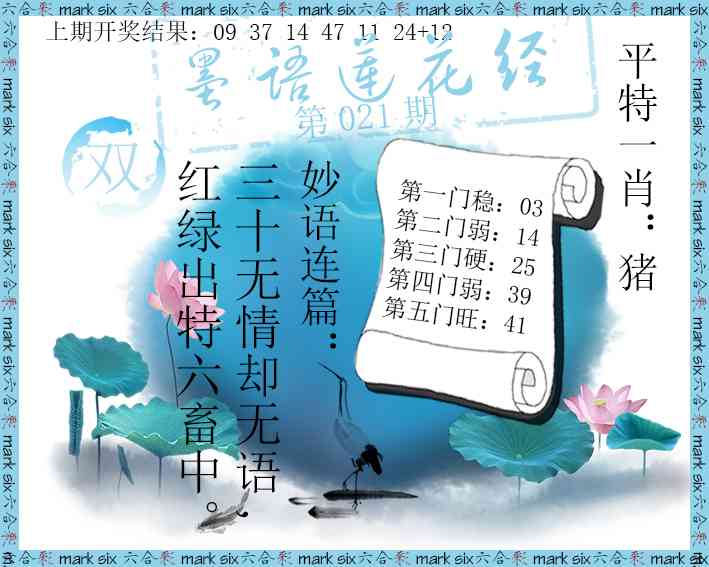 上期开奖结果：09 37 14 47 11 24+12
墨语莲花经
第 021 期
双
平特一肖：猪
第一门稳：03
第二门弱：14
第三门硬：25
第四门弱：39
第五门旺：41
妙语连篇：
三十无情却无语，
红绿出特六畜中。
mark six 六合彩 mark six 六合彩 mark six 六合彩 mark six 六合彩 mark six 六合彩 mark six